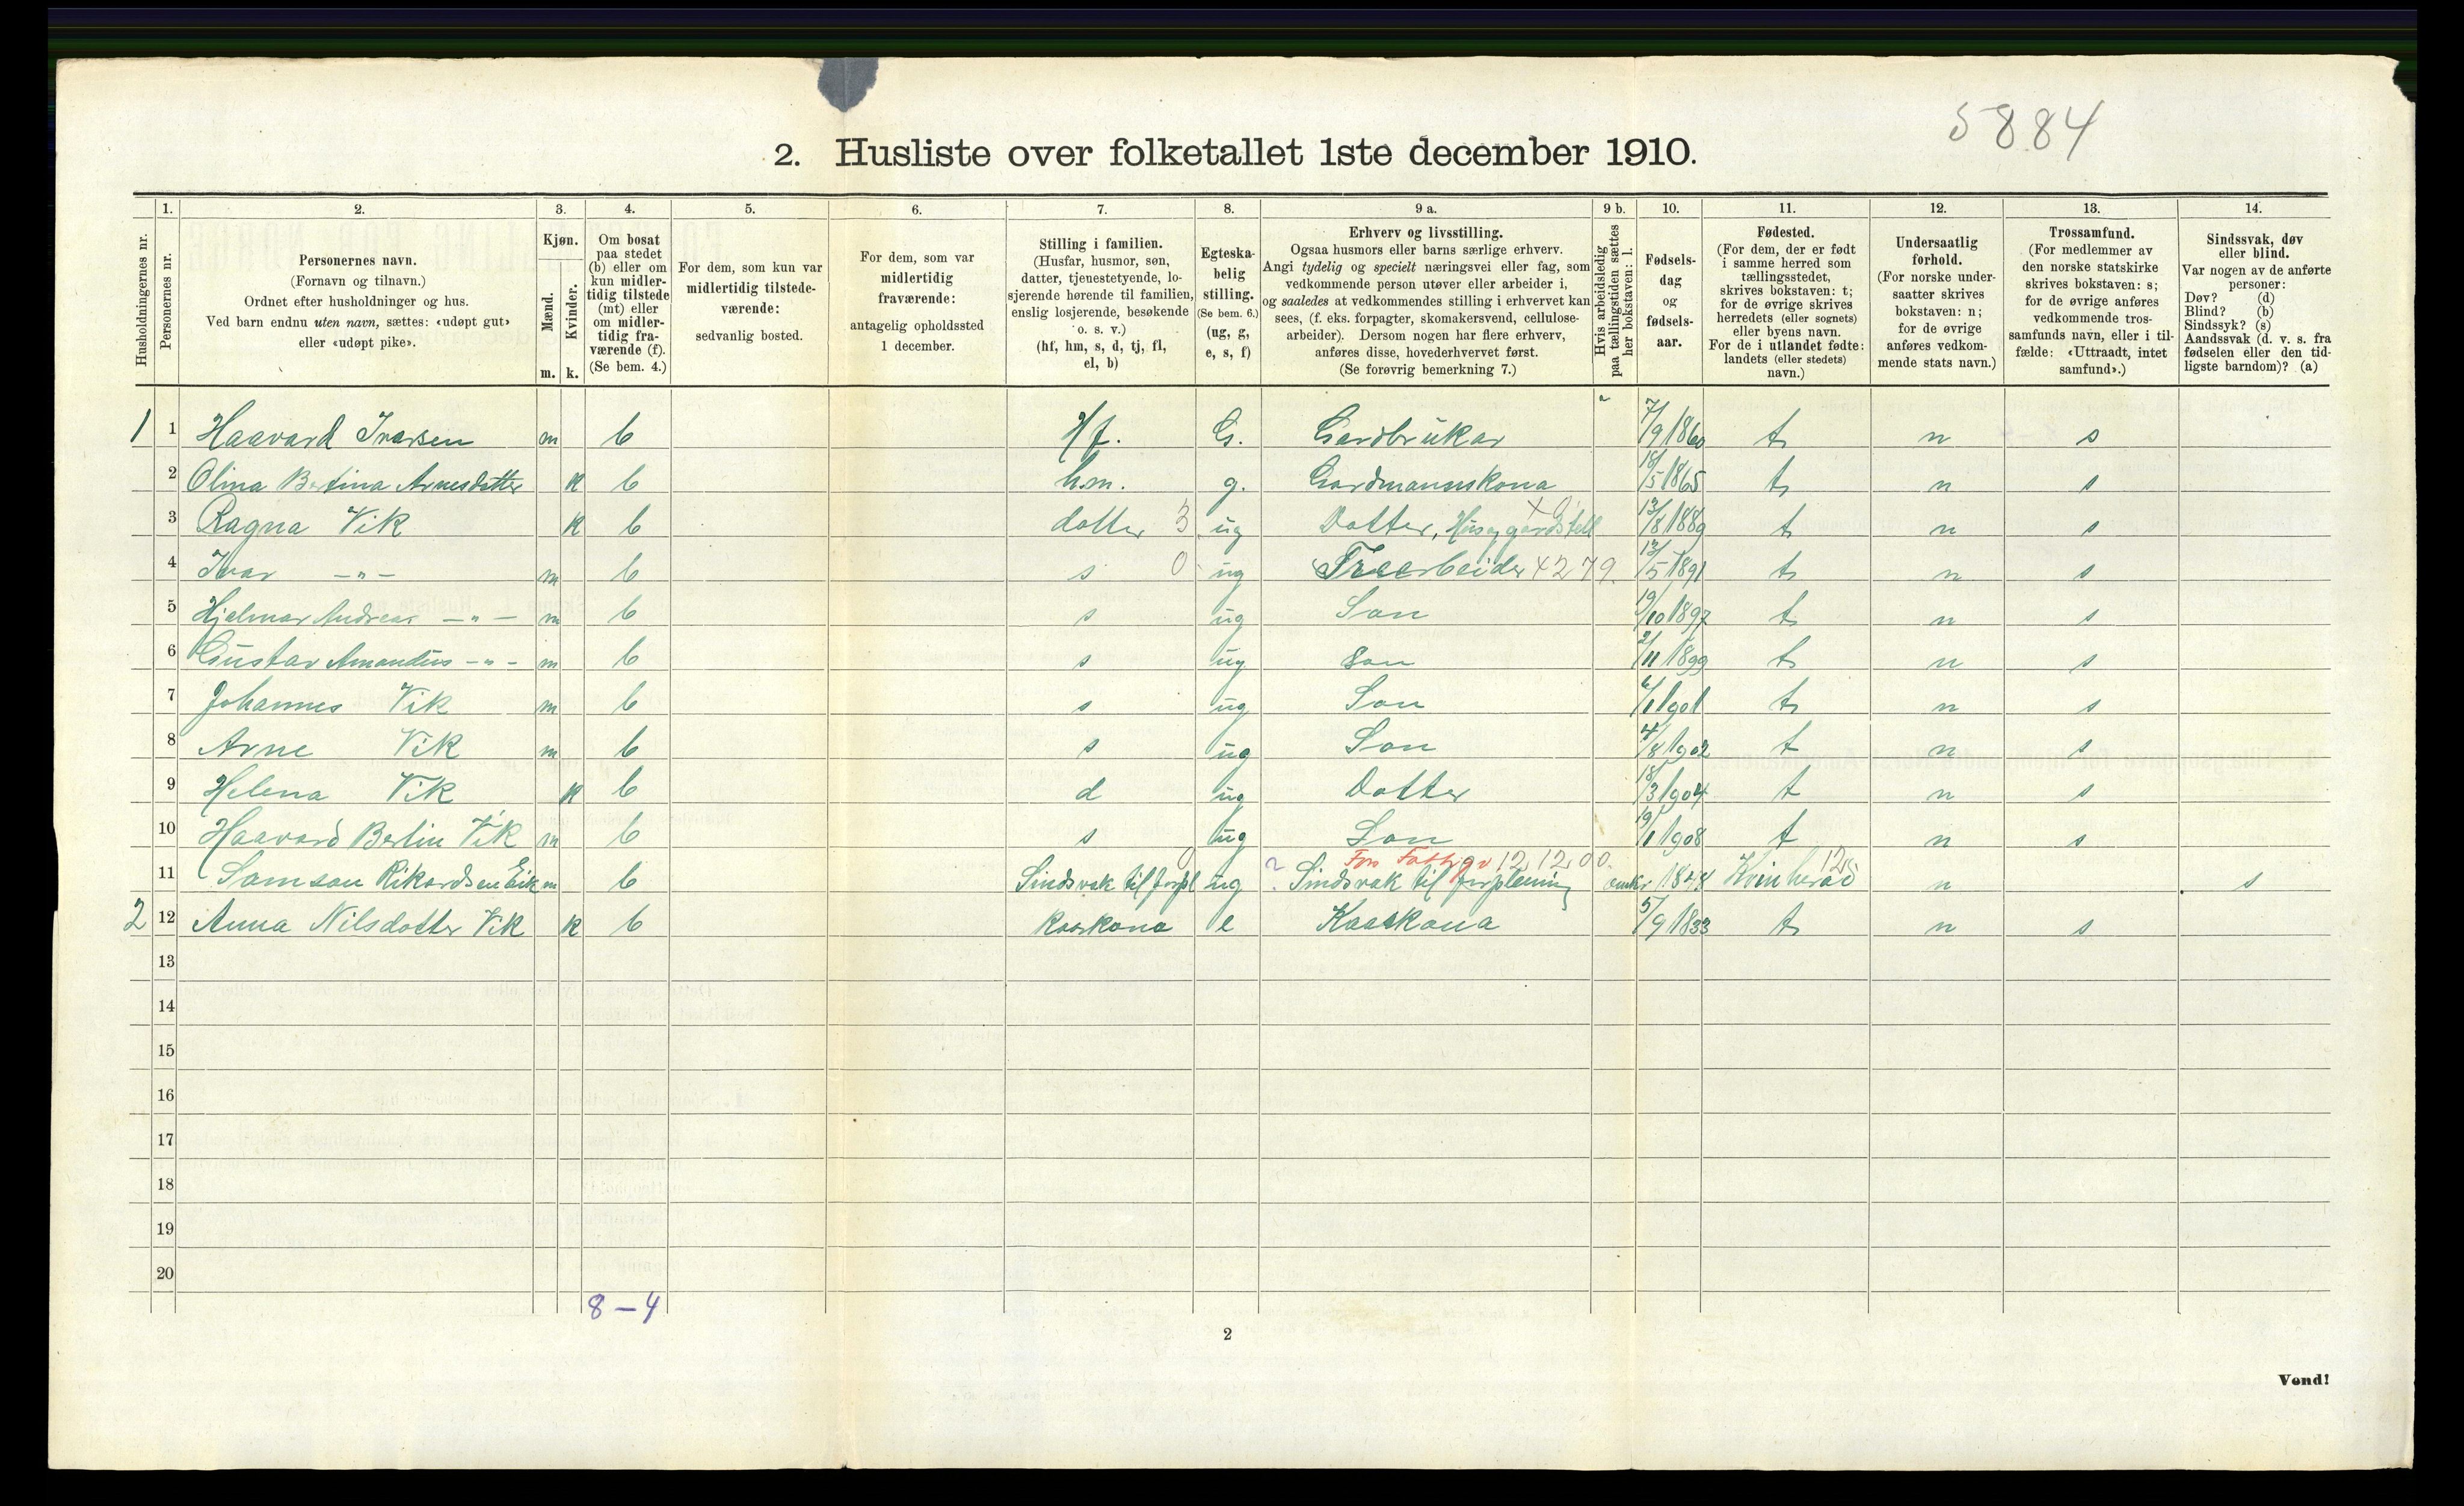 5884
2. Husliste over folketallet 1ste december 1910.
Husholdningernes nr.
1.
Personernes nr.
2.
Personernes navn.
(Fornavn og tilnavn.)
Ordnet efter husholdninger og hus.
Ved barn endnu uten navn, sættes: «udøpt gut»
eller «udøpt pike».
3.
Kjøn.
Mænd.
Kvinder.
m. k.
4.
Om bosat
paa stedet
(b) eller om
kun midler-
tidig tilstede
(mt) eller
om midler-
tidig fra-
værende (f).
(Se bem. 4.)
5.
For dem, som kun var
midlertidig tilstede-
værende:
sedvanlig bosted.
6.
For dem, som var
midlertidig
fraværende:
antagelig opholdssted
1 december.
7.
Stilling i familien.
(Husfar, husmor, søn,
datter, tjenestetyende, lo-
sjerende hørende til familien,
enslig losjerende, besøkende
o. s. v.)
(hf, hm, s, d, tj, fl,
el, b)
8.
Egteska-
belig
stilling.
(Se bem. 6.)
(ug, g,
e, s, f)
9 a.
Erhverv og livsstilling.
Ogsaa husmors eller barns særlige erhverv.
Angi tydelig og specielt næringsvei eller fag, som
vedkommende person utøver eller arbeider i,
og saaledes at vedkommendes stilling i erhvervet kan
sees, (f. eks. forpagter, skomakersvend, cellulose-
arbeider). Dersom nogen har flere erhverv,
anføres disse, hovederhvervet først.
(Se forøvrig bemerkning 7.)
9 b.
Hvis arbeidsledig
paa tællingstiden sættes
her bokstaven: l.
10.
Fødsels-
dag
og
fødsels-
aar.
11.
Fødested.
(For dem, der er født
i samme herred som
tællingsstedet,
skrives bokstaven: t;
for de øvrige skrives
herredets (eller sognets)
eller byens navn.
For de i utlandet fødte:
landets (eller stedets)
navn.)
12.
Undersaatlig
forhold.
(For norske under-
saatter skrives
bokstaven: n;
for de øvrige
anføres vedkom-
mende stats navn.)
13.
Trossamfund.
(For medlemmer av
den norske statskirke
skrives bokstaven: s;
for de øvrige anføres
vedkommende tros-
samfunds navn, eller i til-
fælde: «Uttraadt, intet
samfund».)
14.
Sindssvak, døv
eller blind.
Var nogen av de anførte
personer:
Døv? (d)
Blind? (b)
Sindssyk? (s)
Aandssvak (d. v. s. fra
fødselen eller den tid-
ligste barndom)? (a)
1 1 Haavard Ivarsen m b Hf. G. Gardbrukar 7/9 1860 t n s
2 Olina Bertina Arnesdotter k b h.m. g. Gardmannskona 18/5 1865 t n s
3 Ragna Vik k b dotter 3 ug Dotter, Hus og gardstell 13/8 1889 t n s
4 Ivar -"- m b s 0 ug Træarbeider x 279. 13/5 1891 t n s
5 Hjelmar Andreas -"- m b s ug Son 19/10 1897 t n s
6 Gustav Amandus -"- m b s ug Son 2/11 1899 t n s
7 Johannes Vik m b s ug Son 6/1 1901 t n s
8 Arne Vik m b s ug Son 4/8 1902 t n s
9 Helena Vik k b d ug Dotter 18/3 1904 t n s
10 Haavard Berlin Vik m b s ug Son 19/1 1908 t n s
11 Samson Rikardsen Eik m b Sindsvak til forpl ug Sindsvak til forpleining omkr 1848 Kvinherad n s
2 12 Anna Nilsdotter Vik k b Kaarkona e Kaarkona 5/9 1833 t n s
13
14
15
16
17
18
19
20
8 – 4
2
Vend!